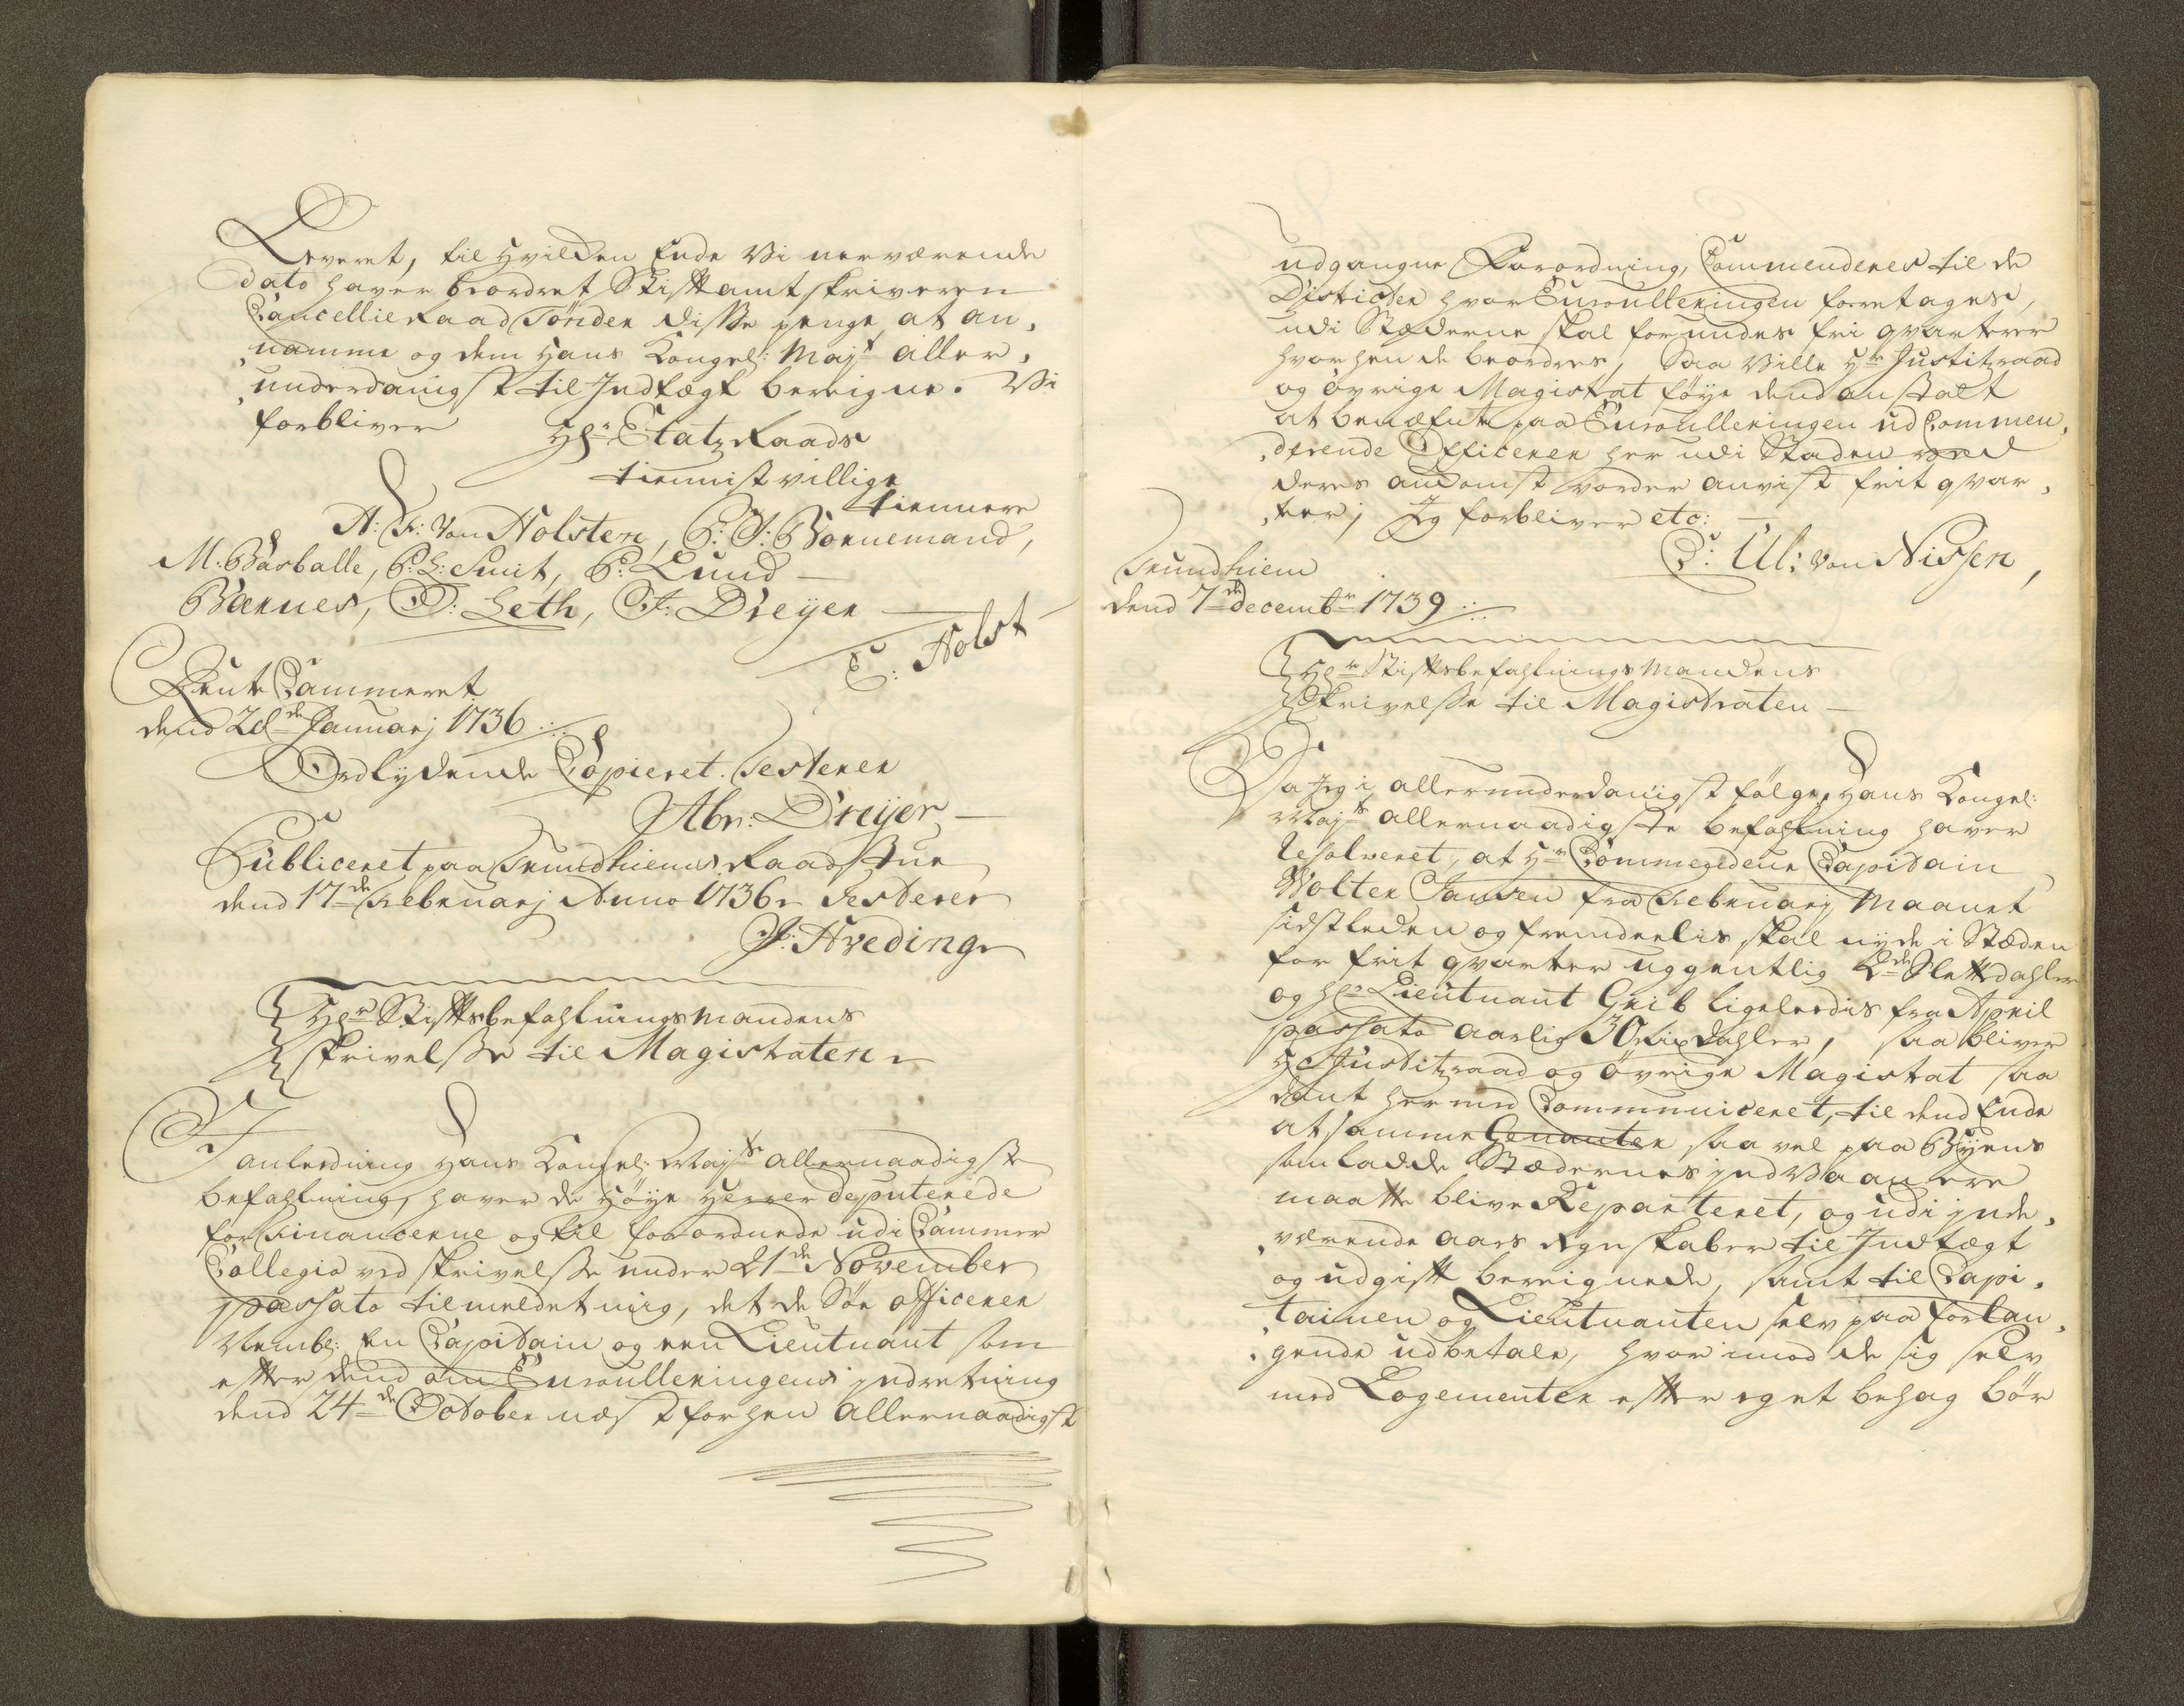 Leveret, til hvilken Ende Vi nerværende
dato haver beordret Stiftamtskriveren
Cancellie Raad Tönder disse penge at an„
„namme og dem Hans Kongel: Mayt aller„
„underdanigst til Indtægt bereigne. Vi
forbliver Hr Etatz Raads
tiennistvillige
tiennere
A: F: Von Holsten, P: J: Bornemand,
M. Basballe, P: H: Smit, P: Lund
Barnes, D: Leth, F: Dreyer
E: Holst
Rente Cammeret
dend 28de Januarj 1736
Ordlydende Copieret. Testerer
Abr: Dreyer
Publiceret paa Trundhiems Raadstue
dend 17de Februarj Anno 1736 Testerer
J: Hveding
Hr Stiftsbefahlningsmandens
skrivelse til Magistraten
I anledning Hans Kongel: Mayts allernaadigste
befahlning, haver de Höye Herrer Deputerede
for Financerne og til forordnede udi Cammer
Collegio ved skrivelse under 21de November
passato tilmeldet mig, det de Söe officerer
Nembl: En Capitain og een Lieutnant som
efter dend om Enroulleringens indretning
dend 24de October næst forhen Allernaadigst
udgangne Forordning, Commenderes til de
Districter hvor Enroulleringen foretages,
udi Stæderne skal forundes fri qvarterer
hvorhen de beordres, Saa Ville Hr Justitzraad
og övrige Magistrat föye dend anstalt
at benæfnte paa Enroulleringen ud Commen„
„derende Officerer her udi Staden ved
deres ankomst vorder anvist frit qvar„
„teer; Jeg forbliver etc:
C: Ul: von Nissen,
Trundhiem
dend 7de decembr 1739
Hr Stiftsbefahlnings Mandens
Skrivelse til Magistraten
Da Jeg i allerunderdanigst fölge, Hans Kongel:
Mayts allernaadigste befahlning haver
Resolveret, at Hr Commendeur Capitain
Wolter Jansen fra Februarj Maanet
sidstleden og fremdeelis skal nyde i Stæden
for frit qvarteer uggentlig 2de Slettedahler
og Hr Lieutnant Grib ligeledis fra April
passato aarlig 30 Rixdahler, saa bliver
Hr Justitzraad og övrige Magistrat saa
dant hermed Communiceret, til dend Ende
at samme Genanter saa vel paa Byens
som Ladde Stædernes indVaanere
maatte blive Reparteret, og udi inde„
„værende aars Regnskaber til Indtægt
og udgift bereignede, samt til Capi„
„tainen og Lieutnanten selv paa forlan„
„gende udbetale, hvorimod de sig selv
med Logementer efter eget behag bör